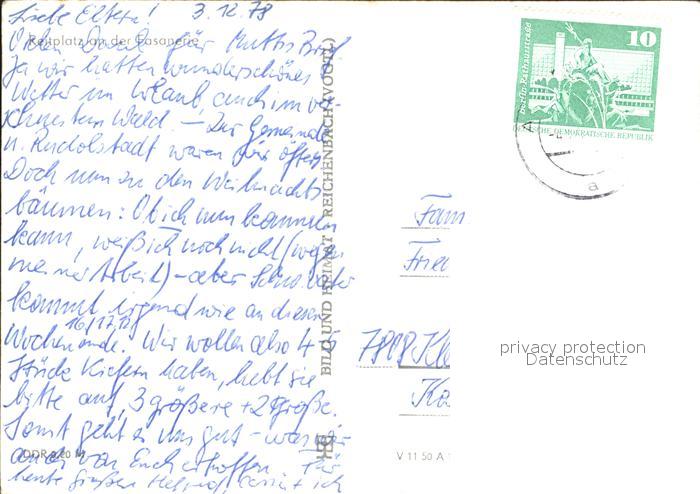 Liebe Eltern! 3.12.78
Reitplatz an der Fasanerie
Vielen Dank für Muttis Brief
Ja wir hatten wunderschönes
Wetter im Urlaub, auch im ver-
schneiten Wald. – Zur Gemeinde
u. Rudolstadt waren wir öfters
Doch nun zu den Weihnachts
bäumen: Ob ich nun kommen
kann, weiß ich noch nicht (wegen
meiner Arbeit) – aber Schw. Vater
kommt irgendwie an diesem
16/17.12
Wochenende. Wir wollen also 4-5
Stücke Kiefern haben, hebt sie
bitte auf, 3 größere + 2 große.
Sonst geht es uns gut – was wir
auch von Euch erhoffen. Für
heute grüßen
ich
DDR 0,20 M
BILD UND HEIMAT REICHENBACH (VOGTL)
V 11 50 A 1
10
Berlin, Rathausstraße
DEUTSCHE DEMOKRATISCHE REPUBLIK
a
Fam
Frie
7808 Kle
privacy protection
Datenschutz